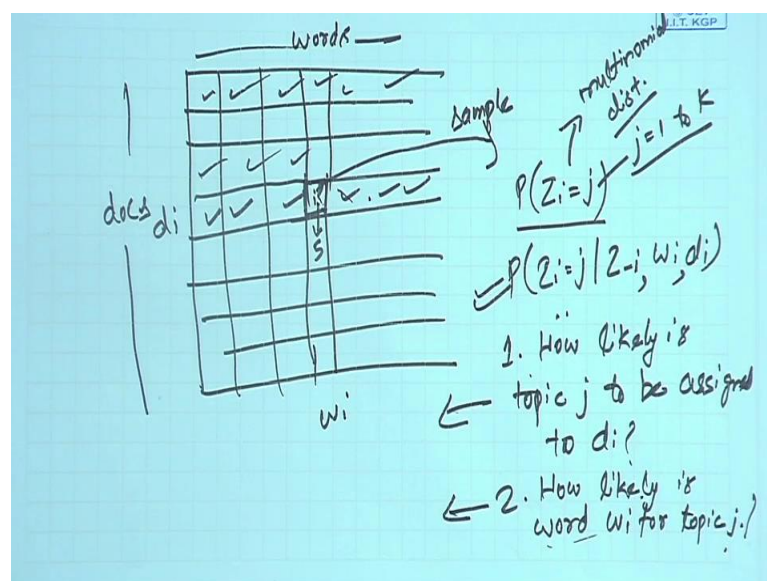 I.I.T. KGP
words
docs
di
wi
5
sample
multinomial
dist.
P(Zi=j)
j=1 to K
P(Zi=j | Z-i, wi, di)
1. How likely is
topic j to be assigned
to di?
2. How likely is
word wi for topic j.?